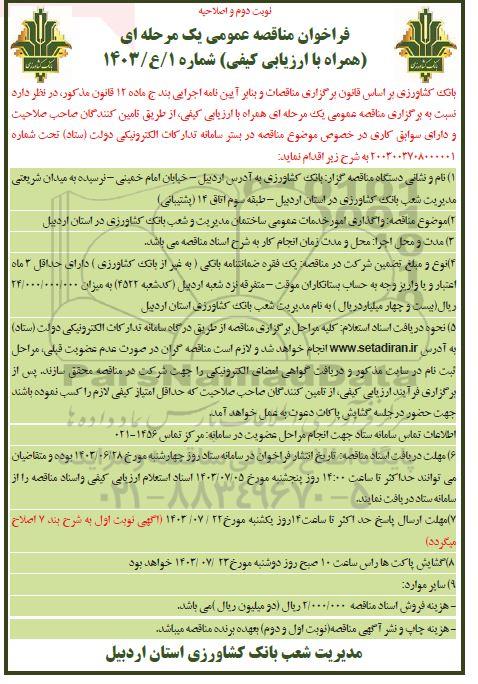 نوبت دوم و اصلاحیه
فراخوان مناقصه عمومی یک مرحله ای
(همراه با ارزیابی کیفی) شماره ۱/ع/۱۴۰۳
بانک کشاورزی
بانک کشاورزی
بانک کشاورزی بر اساس قانون برگزاری مناقصات و بنابر آیین نامه اجرایی بند ج ماده ۱۲ قانون مذکور، در نظر دارد
نسبت به برگزاری مناقصه عمومی یک مرحله ای همراه با ارزیابی کیفی، از طریق تامین کنندگان صاحب صلاحیت
و دارای سوابق کاری در خصوص موضوع مناقصه در بستر سامانه تدارکات الکترونیکی دولت (ستاد) تحت شماره
۲۰۰۳۰۰۳۷۰۸۰۰۰۰۰۱ به شرح زیر اقدام نماید:
۱) نام و نشانی دستگاه مناقصه گزار: بانک کشاورزی به آدرس اردبیل – خیابان امام خمینی – نرسیده به میدان شریعتی
مدیریت شعب بانک کشاورزی در استان اردبیل – طبقه سوم اتاق ۱۴ (پشتیبانی)
۲) موضوع مناقصه: واگذاری امور خدمات عمومی ساختمان مدیریت و شعب بانک کشاورزی در استان اردبیل
۳) مدت و محل اجرا: محل و مدت زمان انجام کار به شرح اسناد مناقصه می باشد.
۴) نوع و مبلغ تضمین شرکت در مناقصه: یک فقره ضمانتنامه بانکی ( به غیر از بانک کشاورزی ) دارای حداقل ۳ ماه
اعتبار و یا واریز وجه به حساب بستانکاران موقت – متفرقه نزد شعبه اردبیل (کدشعبه ۴۵۲۲) به میزان ۲۴/۰۰۰/۰۰۰/۰۰۰
ریال(بیست و چهار میلیاردریال ) به نام مدیریت شعب بانک کشاورزی استان اردبیل
۵) نحوه دریافت اسناد استعلام: کلیه مراحل برگزاری مناقصه از طریق درگاه سامانه تدارکات الکترونیکی دولت (ستاد)
به آدرس www.setadiran.ir انجام خواهد شد و لازم است مناقصه گران در صورت عدم عضویت قبلی، مراحل
ثبت نام در سایت مذکور و دریافت گواهی امضای الکترونیکی را جهت شرکت در مناقصه محقق سازند. پس از
برگزاری فرآیند ارزیابی کیفی، از تامین کنندگان صاحب صلاحیت که حداقل امتیاز کیفی لازم را کسب نموده باشند
جهت حضور در جلسه گشایش پاکات دعوت به عمل خواهد آمد.
اطلاعات تماس سامانه ستاد جهت انجام مراحل عضویت در سامانه: مرکز تماس ۱۴۵۶-۰۲۱
۶) مهلت دریافت اسناد مناقصه: تاریخ انتشار فراخوان در سامانه ستاد روز چهارشنبه مورخ ۱۴۰۳/۰۶/۲۸ بوده و متقاضیان
می توانند حداکثر تا ساعت ۱۴:۰۰ روز پنجشنبه مورخ ۱۴۰۳/۰۷/۰۵ اسناد استعلام ارزیابی کیفی و اسناد مناقصه را از
سامانه ستاد دریافت نمایند.
۷) مهلت ارسال پاسخ حد اکثر تا ساعت ۱۴ روز یکشنبه مورخ ۲۲ /۰۷/ ۱۴۰۳ (آگهی نوبت اول به شرح بند ۷ اصلاح
میگردد)
۸) گشایش پاکت ها راس ساعت ۱۰ صبح روز دوشنبه مورخ ۲۳ /۰۷/ ۱۴۰۳ خواهد بود
۹) سایر موارد:
– هزینه فروش اسناد مناقصه ۲/۰۰۰/۰۰۰ ریال (دو میلیون ریال )می باشد.
– هزینه چاپ و نشر آگهی مناقصه(نوبت اول و دوم) بعهده برنده مناقصه میباشد.
مدیریت شعب بانک کشاورزی استان اردبیل
ParsNamadData
۰۲۱-۸۸۳۴۹۶۷۰-۵